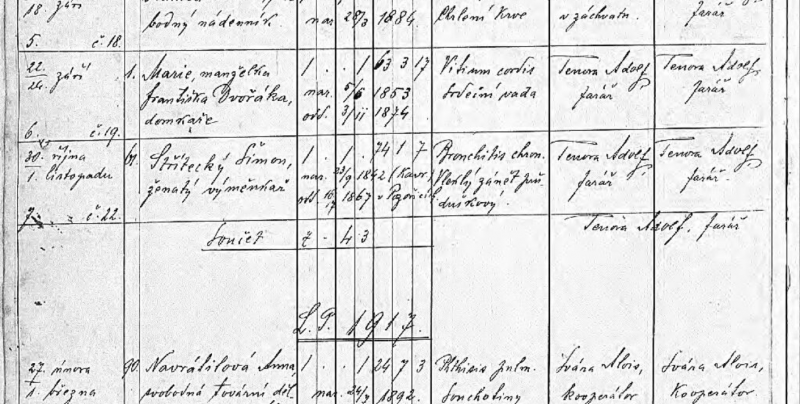 18. září bodný nádenník nar. 28/3 1884. Chrlení krve v záchvatu. farář farář
5. č. 18.
22. září 1. Marie, manželka 1 . . 1 63 3 17 Vitium cordis Tenora Adolf, Tenora Adolf,
24. Františka Dvořáka, nar. 5/6 1853 Srdeční vada farář farář
domkaře odd. 3/11 1874.
6. č. 19.
30. října 61. Střítecký Šimon, 1 . 1 . 74 1 7 Bronchitis chron. Tenora Adolf, Tenora Adolf,
1. listopadu ženatý výměnkář nar. 23/9 1842 (Kavr.) Vleklý zánět prů farář farář.
odd. 1867 v duškový.
7. č. 22.
Součet 7 . 4 3 Tenora Adolf, farář
L. P. 1917.
27. února 90. Navrátilová Anna, 1 . . 1 24 7 3 Phthisis pulm. Svára Alois, Svára Alois,
1. března svobodná tovární děl. nar. 24/7 1892. Souchotiny kooperátor kooperátor.